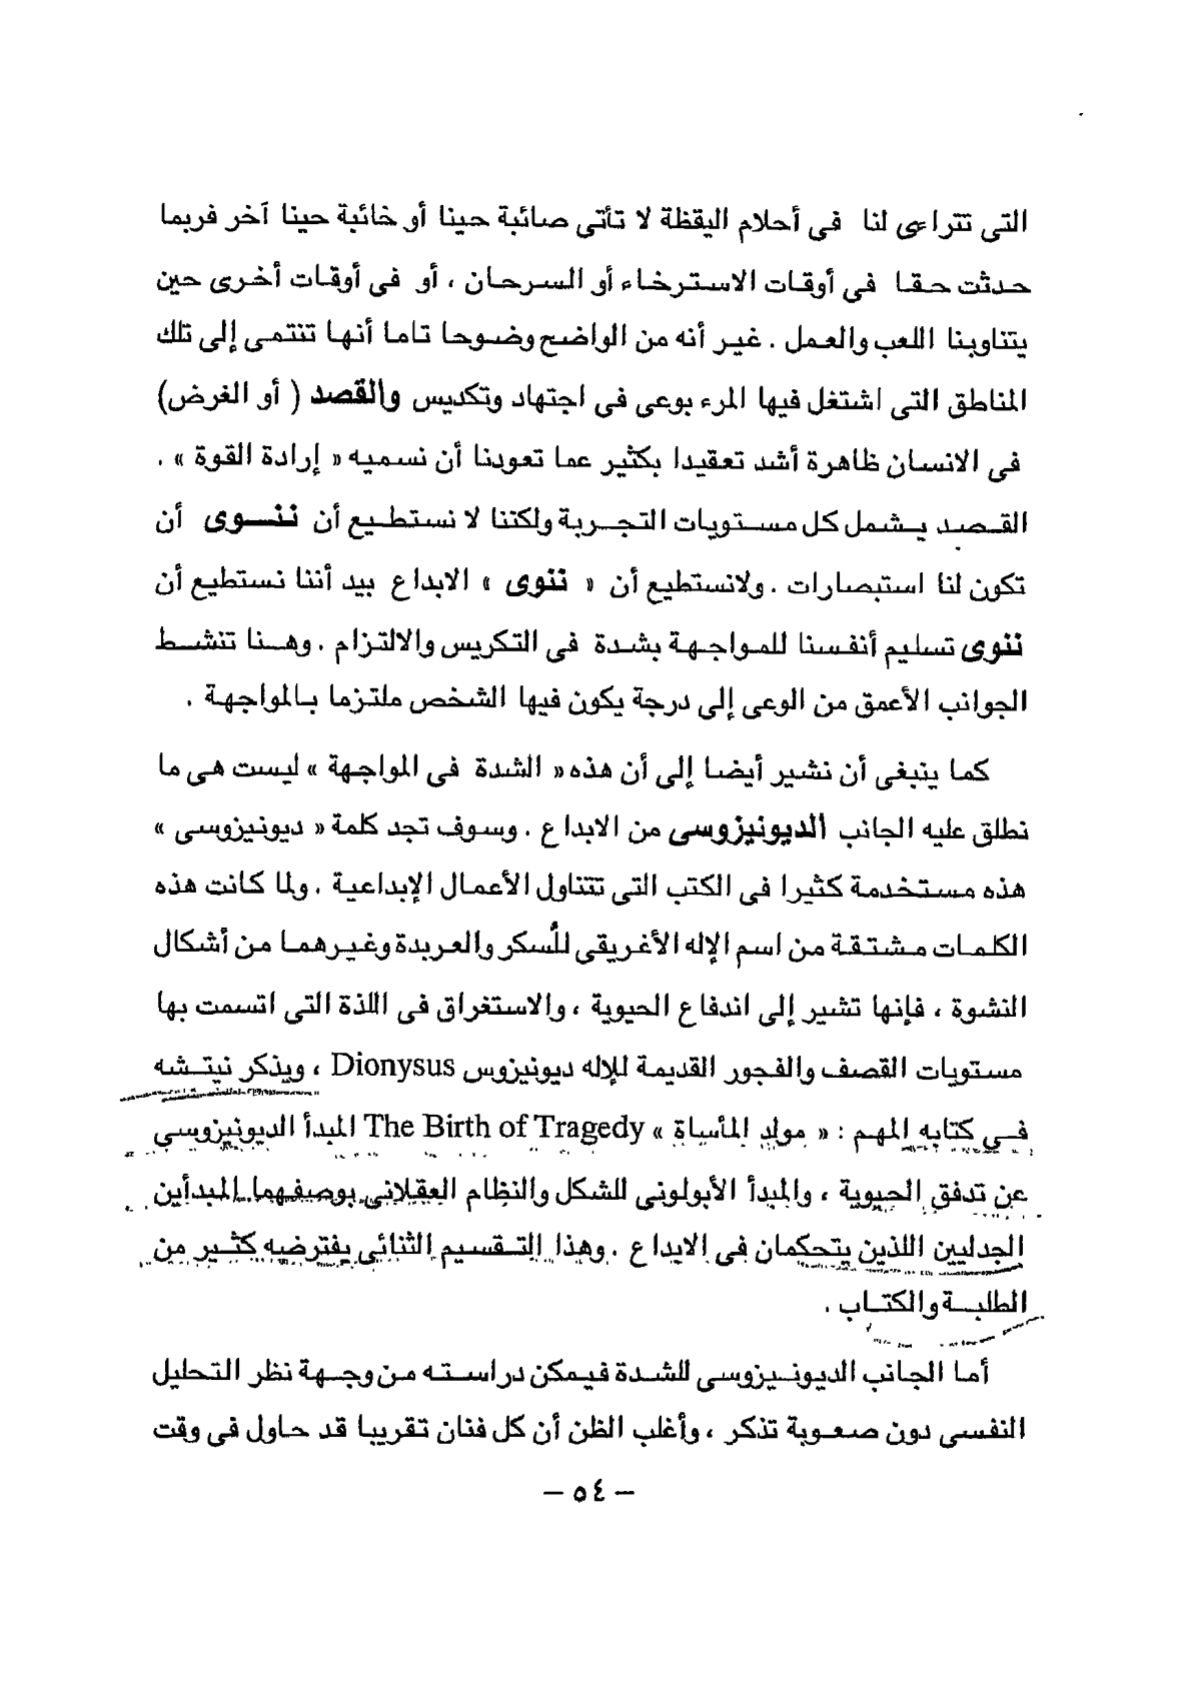 التى تتراءى لنا فى أحلام اليقظة لا تأتى صائبة حينا أو خائبة حينا آخر فربما
حدثت حقا فى أوقات الاسترخاء أو السرحان ، أو فى أوقات أخرى حين
يتناوبنا اللعب والعمل . غير أنه من الواضح وضوحا تاما أنها تنتمى إلى تلك
المناطق التى اشتغل فيها المرء بوعى فى اجتهاد وتكديس والقصد ( أو الغرض)
فى الانسان ظاهرة أشد تعقيدا بكثير عما تعودنا أن نسميه « إرادة القوة » .
القصد يشمل كل مستويات التجربة ولكننا لا نستطيع أن ننوى أن
تكون لنا استبصارات . ولانستطيع أن « ننوى » الابداع بيد أننا نستطيع أن
ننوى تسليم أنفسنا للمواجهة بشدة فى التكريس والالتزام . وهنا تنشط
الجوانب الأعمق من الوعى إلى درجة يكون فيها الشخص ملتزما بالمواجهة .
كما ينبغى أن نشير أيضا إلى أن هذه « الشدة فى المواجهة » ليست هى ما
نطلق عليه الجانب الديونيزوسى من الابداع . وسوف تجد كلمة « ديونيزوسى »
هذه مستخدمة كثيرا فى الكتب التى تتناول الأعمال الإبداعية . ولما كانت هذه
الكلمات مشتقة من اسم الإله الأغريقى للسُكر والعربدة وغيرهما من أشكال
النشوة ، فإنها تشير إلى اندفاع الحيوية ، والاستغراق فى اللذة التى اتسمت بها
مستويات القصف والفجور القديمة للإله ديونيزوس Dionysus ، ويذكر نيتشه
فى كتابه المهم : « مولد المأساة » The Birth of Tragedy المبدأ الديونيزوسى
عن تدفق الحيوية ، والمبدأ الأبولونى للشكل والنظام العقلانى بوصفهما المبدأين
الجدليين اللذين يتحكمان فى الابداع . وهذا التقسيم الثنائى يفترضه كثير من
الطلبة والكتاب .
أما الجانب الديونيزوسى للشدة فيمكن دراسته من وجهة نظر التحليل
النفسى دون صعوبة تذكر ، وأغلب الظن أن كل فنان تقريبا قد حاول فى وقت
– ٥٤ –